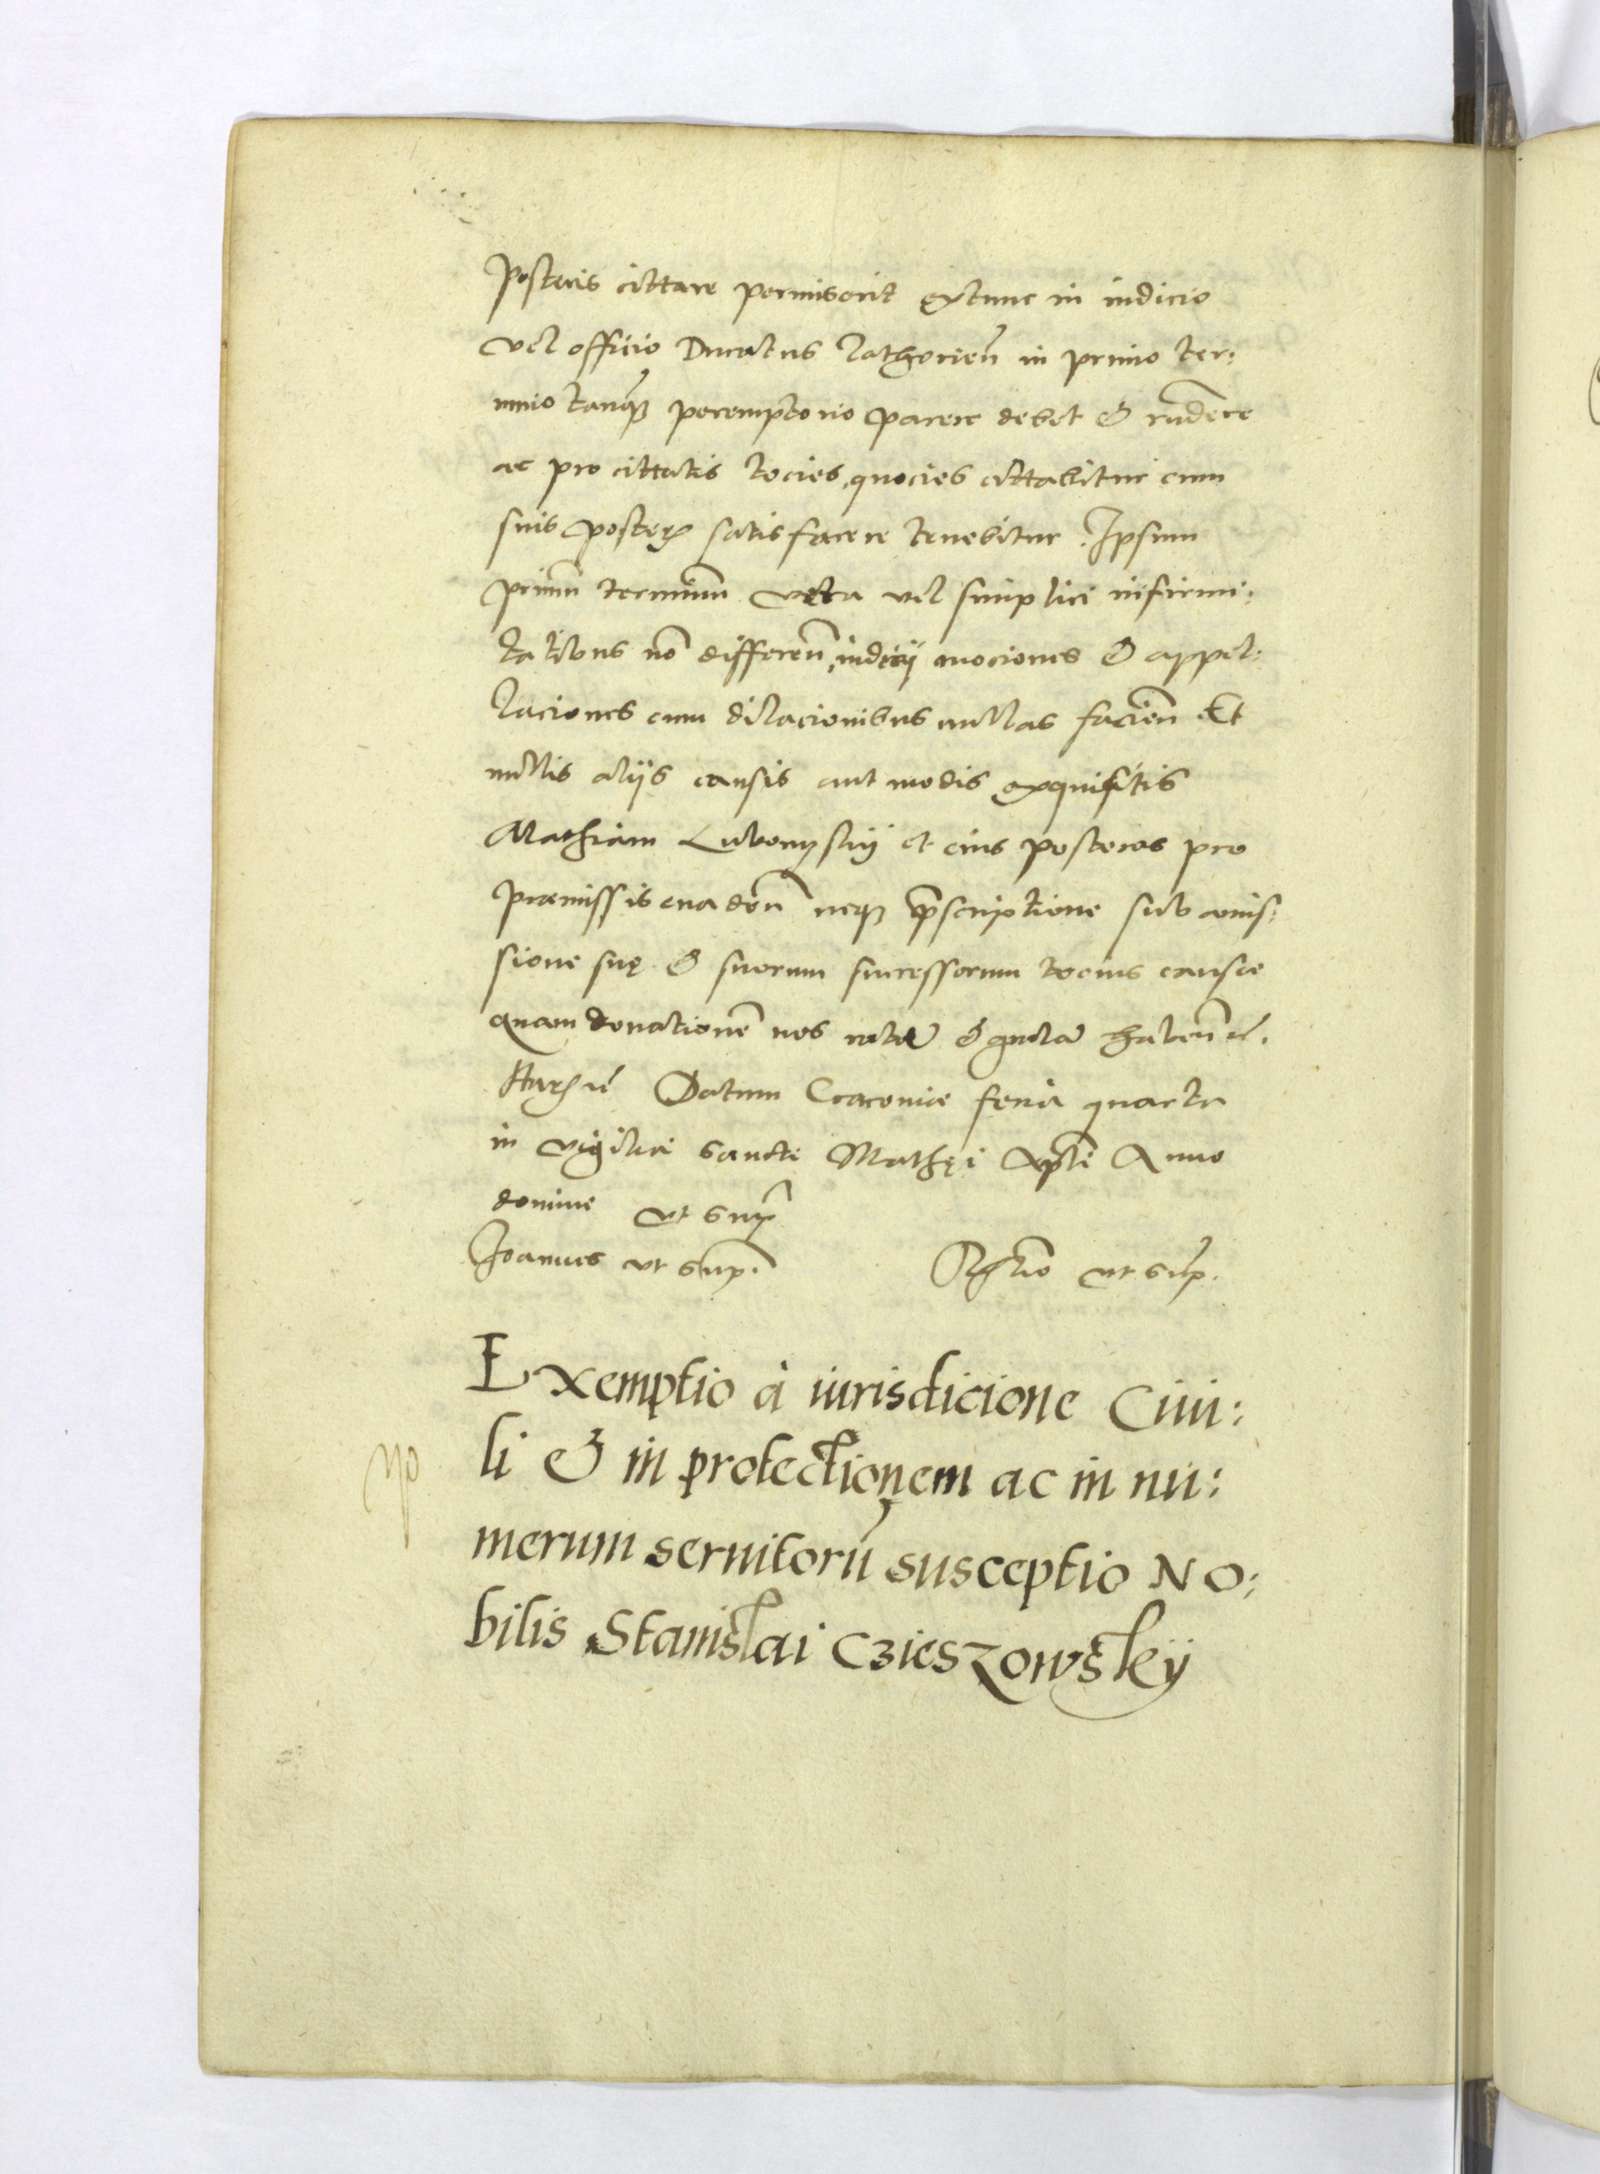 Posteris cittare permiserit extunc in iudicio
vel officio Ducatus Zathorien̄ in primo ter:
mino tanq̃ peremptorio parere debet & rñdere
ac pro cittatis tocies, quocies cittabitur cum
suis poster̄ satisfacere tenebitur. Ipsum
primū terminū vera vel simplici infirmi:
tatibus nō differeñ, iudicij mociones & appel:
laciones cum dilacionibus nullas facieñ Et
nullis alijs causis aut modis exquisitis
Mathiam Lubomyskij et eius posteros pro
praemissis euadeñ neq3 p̄scriptione sub amis:
sione suę & suorum successorum tocius causae
quam donationē nos ratā & gratā habeñ ēt.
Harȝ ēt Datum Cracoviae feria quarta
in vigilia sancti Mathęi Apli Anno
domini vt sup̄
Joannes vt sup̄.
Rȩlatio vt sup̄.
Exemptio à iurisdicione Ciui:
li & in protectionem ac in nu:
merum seruitorū susceptio No:
bilis Stanislai Czieszowskij